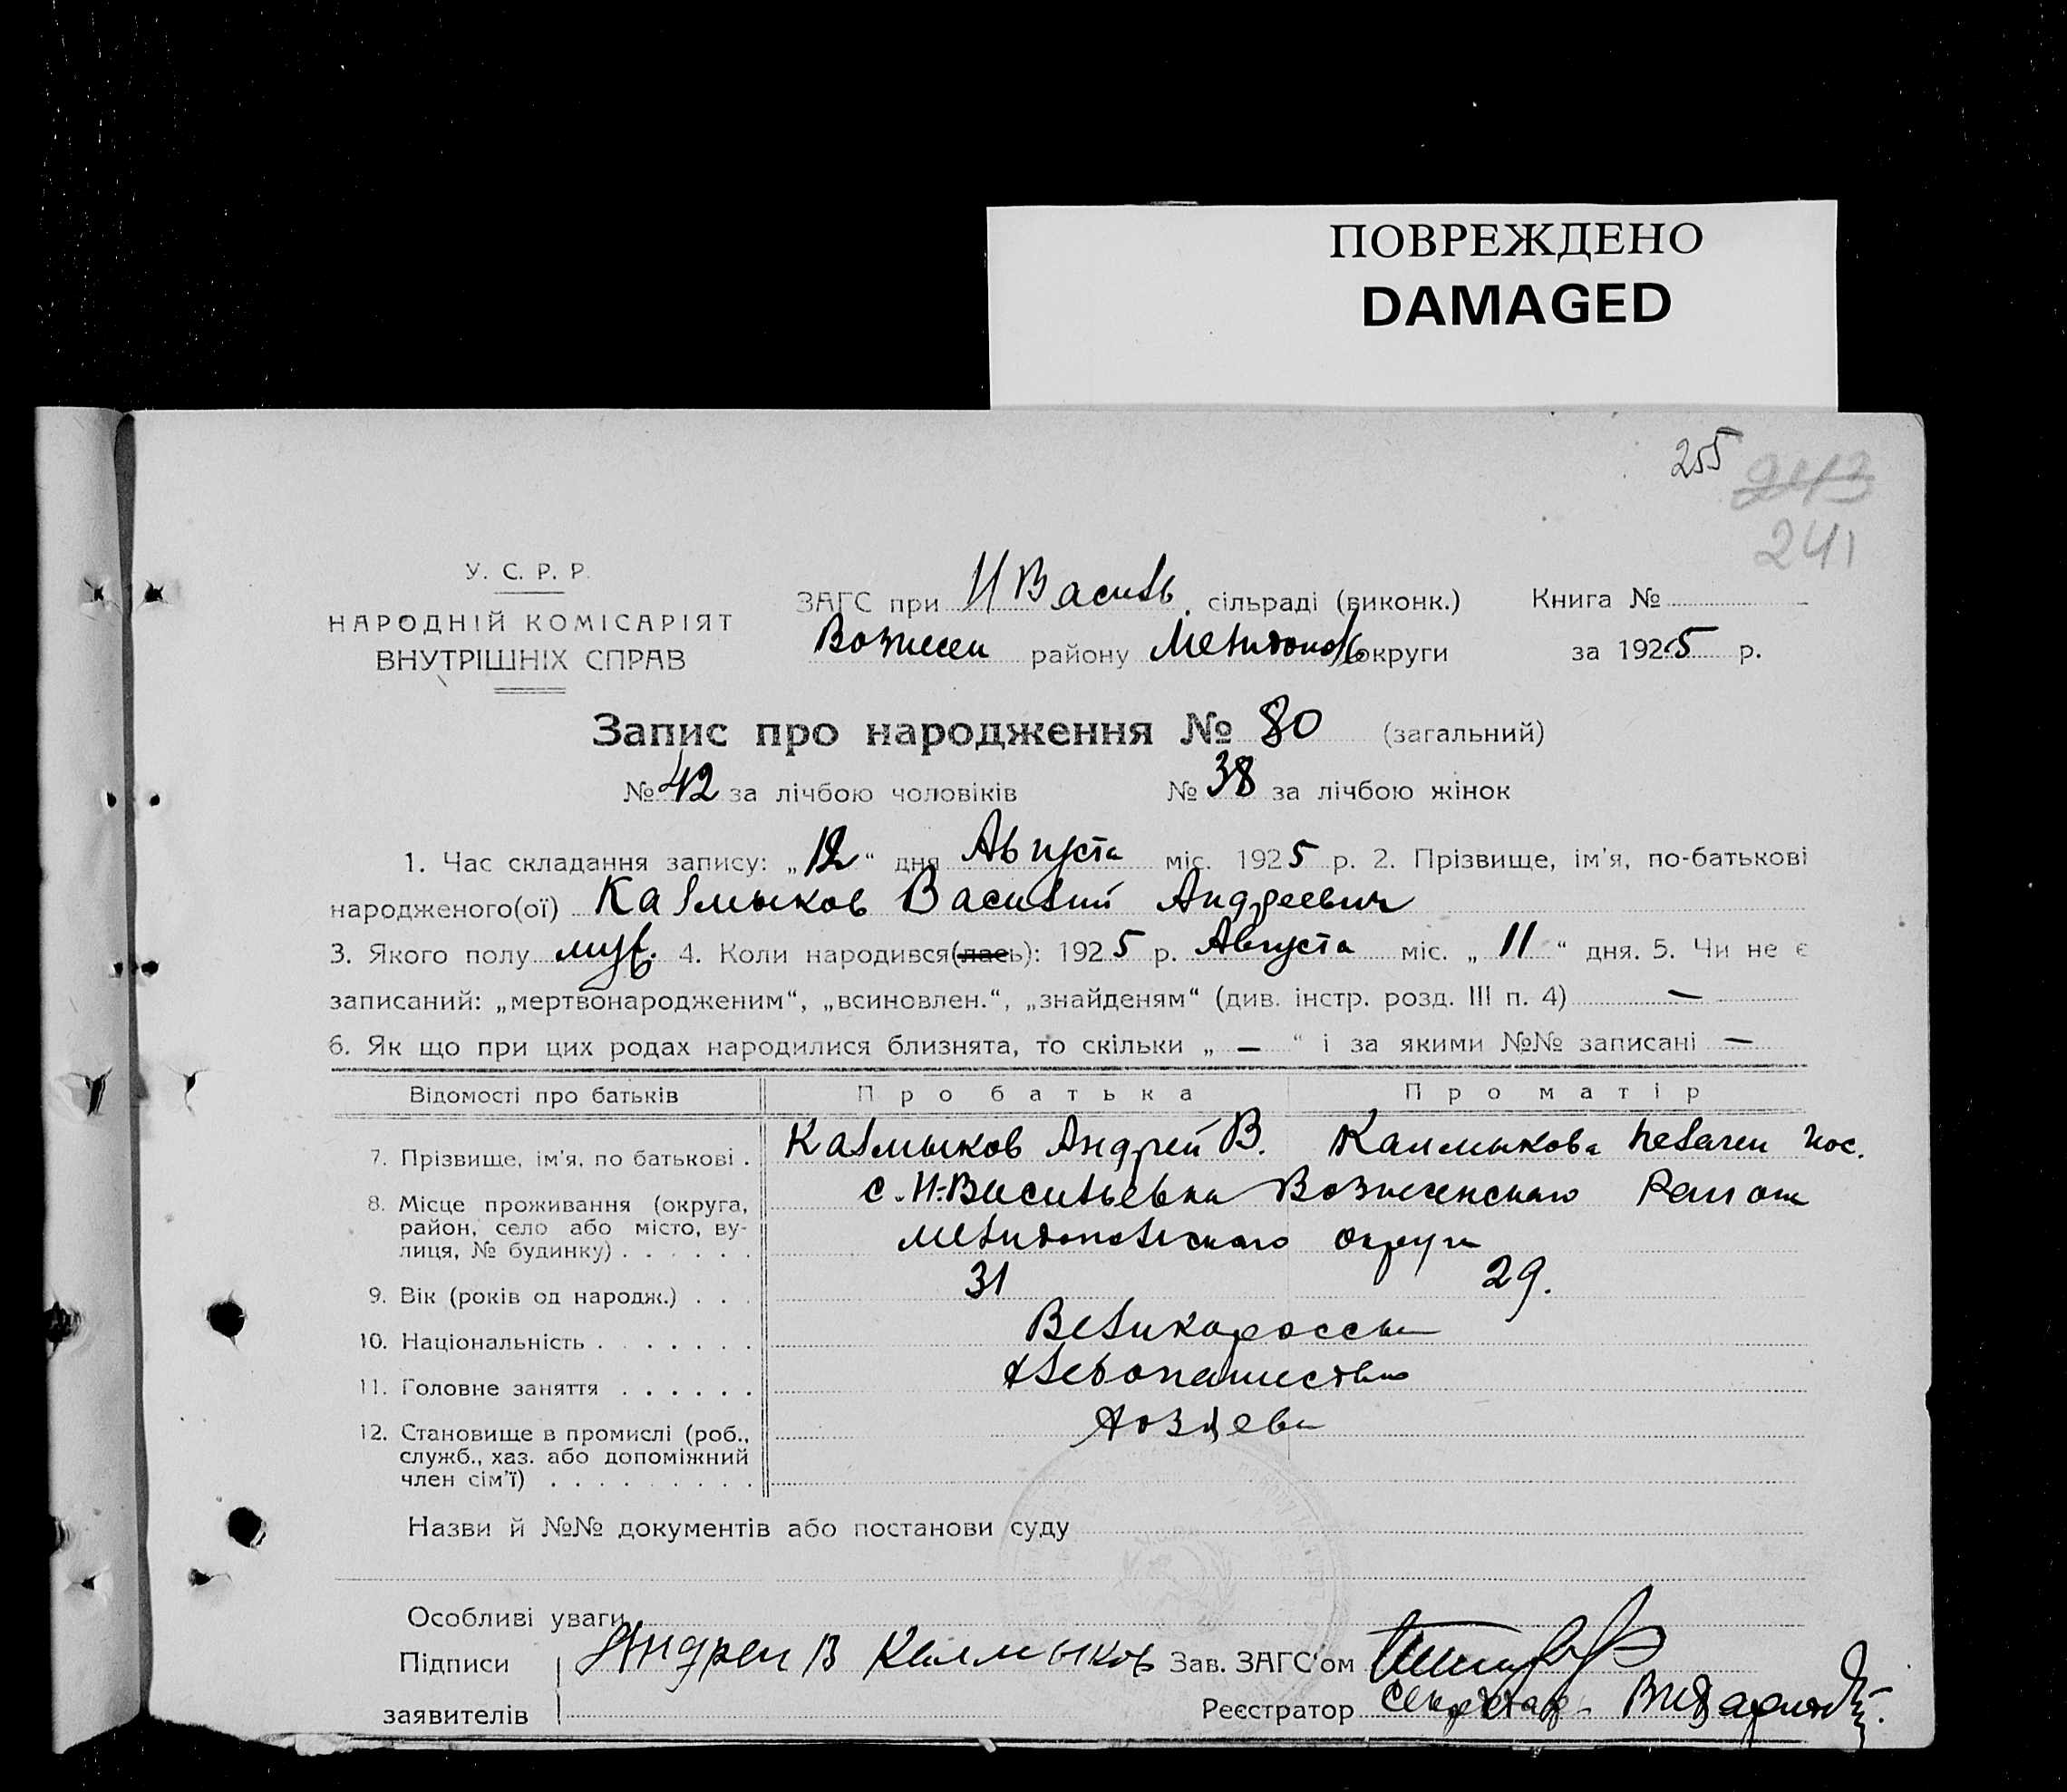 ПОВРЕЖДЕНО
DAMAGED
255
243
241
У. С. Р. Р.
НАРОДНІЙ КОМІСАРІЯТ
ВНУТРІШНІХ СПРАВ
ЗАГС при Н Василь. сільраді (виконк.) Книга №
Вознесен району Мелитоп округи за 1925 р.
Запис про народження № 80 (загальний)
№ 42 за лічбою чоловіків № 38 за лічбою жінок
1. Час складання запису: „12“ дня Августа міс. 1925 р. 2. Прізвище, ім'я, по-батькові
народженого(ої) Калмыков Василий Андреевич
3. Якого полу муж. 4. Коли народився(лась): 1925 р. Августа міс. „11“ дня. 5. Чи не є
записаний: „мертвонародженим“, „всиновлен.“, „знайденям“ (див. інстр. розд. III п. 4) —
6. Як що при цих родах народилися близнята, то скільки „ — “ і за якими №№ записані —
Відомості про батьків Про батька Про матір
7. Прізвище, ім'я, по батькові . Калмыков Андрей В. Калмыкова
8. Місце проживання (округа, район, село або місто, вулиця, № будинку) . . . . . . с. Н-Васильевка Вознесенского Района
Мелитопольского округа
9. Вік (років од народж.) . . . 31 29.
10. Національність . . . . . . . Великороссы
11. Головне заняття . . . . . . Хлебопашество
12. Становище в промислі (роб., служб., хаз. або допоміжний член сім'ї) . . . . . . . . . Хозяева
Назви й №№ документів або постанови суду
Особливі уваги
Підписи Андрей В Калмыков Зав. ЗАГС'ом
заявителів Реєстратор Секретарь